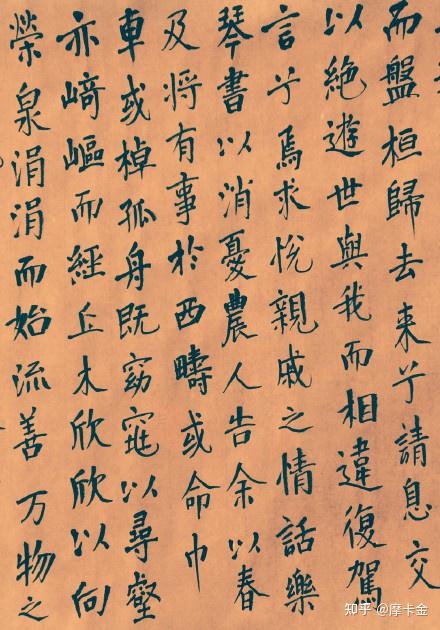 而盤桓歸去来兮請息交
以絶遊世與我而相違復駕
言兮焉求悦親戚之情話樂
琴書以消憂農人告余以春
及将有事於西疇或命巾
車或棹孤舟既窈窕以尋壑
亦崎嶇而經丘木欣欣以向
榮泉涓涓而始流善万物之
知乎 @摩卡金